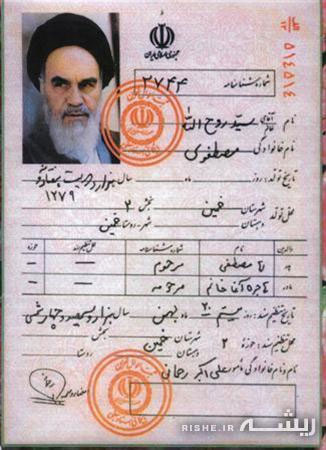 جمهوری اسلامی ایران
شماره شناسنامه ۲۷۴۴
۴۱۵۴۱۵
نام آقای خانم سید روح الله
نام خانوادگی مصطفوی
تاریخ تولد: روز ماه سال هزار و دویست و هفتاد و نه
۱۲۷۹
محل تولد شهرستان خمین بخش ۲
دهستان شهر - روستا خمین
والدین نام شماره شناسنامه محل تنظیم سند حوزه
پدر آقا مصطفی مرحوم — —
مادر هاجره آقا خانم مرحومه — —
تاریخ تنظیم سند: روز بیستم ۲۰ ماه بهمن سال هزار و سیصد و چهار شمسی
محل تنظیم سند: حوزه ۲ شهرستان خمین بخش
دهستان روستا
نام و نام خانوادگی مأمور علی اکبر رحمانی
امضاء و مهر
ریشه
RISHE.IR